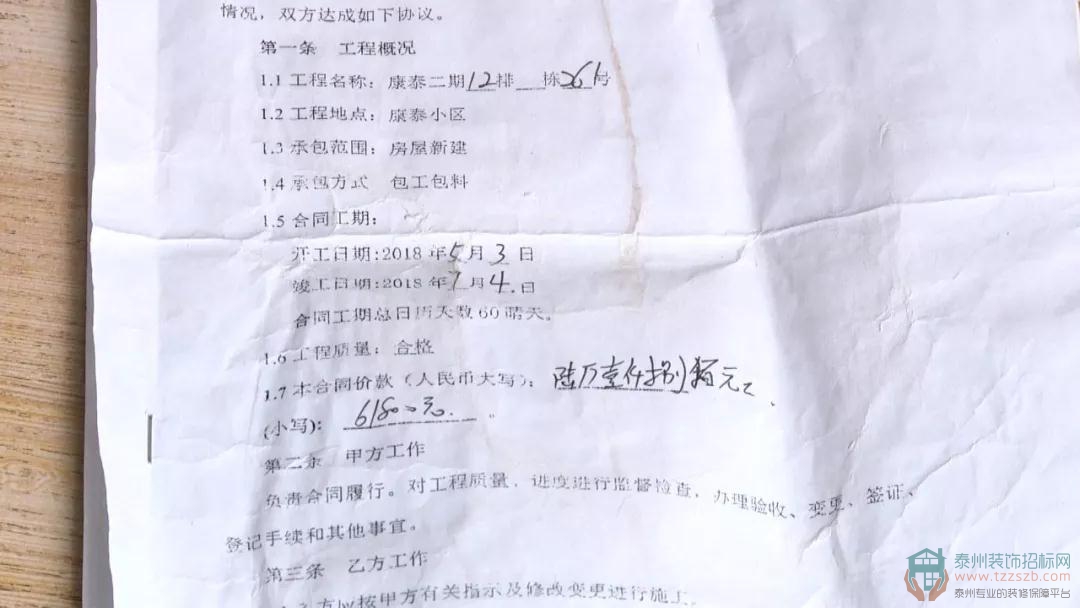 情况，双方达成如下协议。
第一条 工程概况
1.1 工程名称：康泰二期12排___栋261号
1.2 工程地点：康泰小区
1.3 承包范围：房屋新建
1.4 承包方式 包工包料
1.5 合同工期：
开工日期:2018 年5月3日
竣工日期:2018 年7月4.日
合同工期总日历天数 60 晴天。
1.6 工程质量：合格
1.7 本合同价款（人民币大写）：陆万壹仟捌佰元
(小写)：61800元. 。
第二条 甲方工作
负责合同履行。对工程质量，进度进行监督检查，办理验收、变更、签证、
登记手续和其他事宜。
第三条 乙方工作
方应按甲方有关指示及修改变更进行施工，
泰州装饰招标网
www.tzzszb.com
泰州专业的装修保障平台